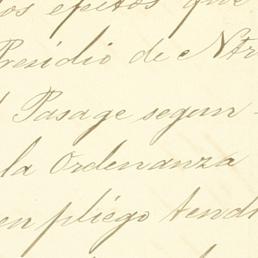 los efetos que
Presidio de Ntr
Pasage segun
la Ordenanza
en pliego tend